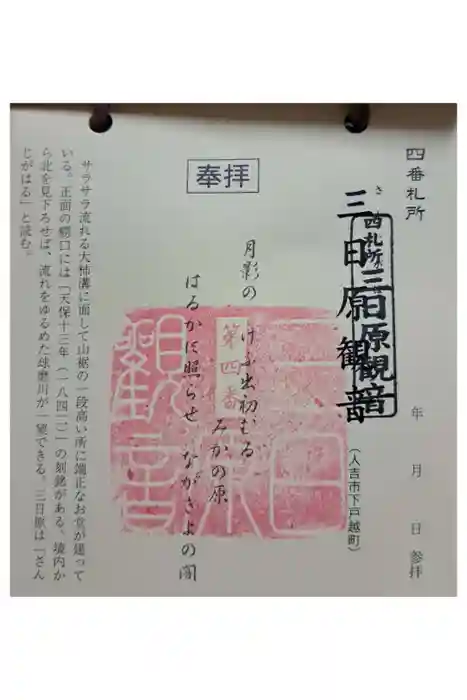 四番札所
年 月 日 参拝
三日原観音
四札所三日原観音
(人吉市下戸越町)
奉拝
第四番
月影の けふ出初むる みかの原
はるかに照らせ ながきよの闇
サラサラ流れる大柿溝に面して山裾の一段高い所に端正なお堂が建って
いる。正面の鰐口には「天保十三年(一八四二)」の刻銘がある。境内か
ら北を見下ろせば、流れをゆるめた球磨川が一望できる。三日原は「さん
じがはる」と読む。